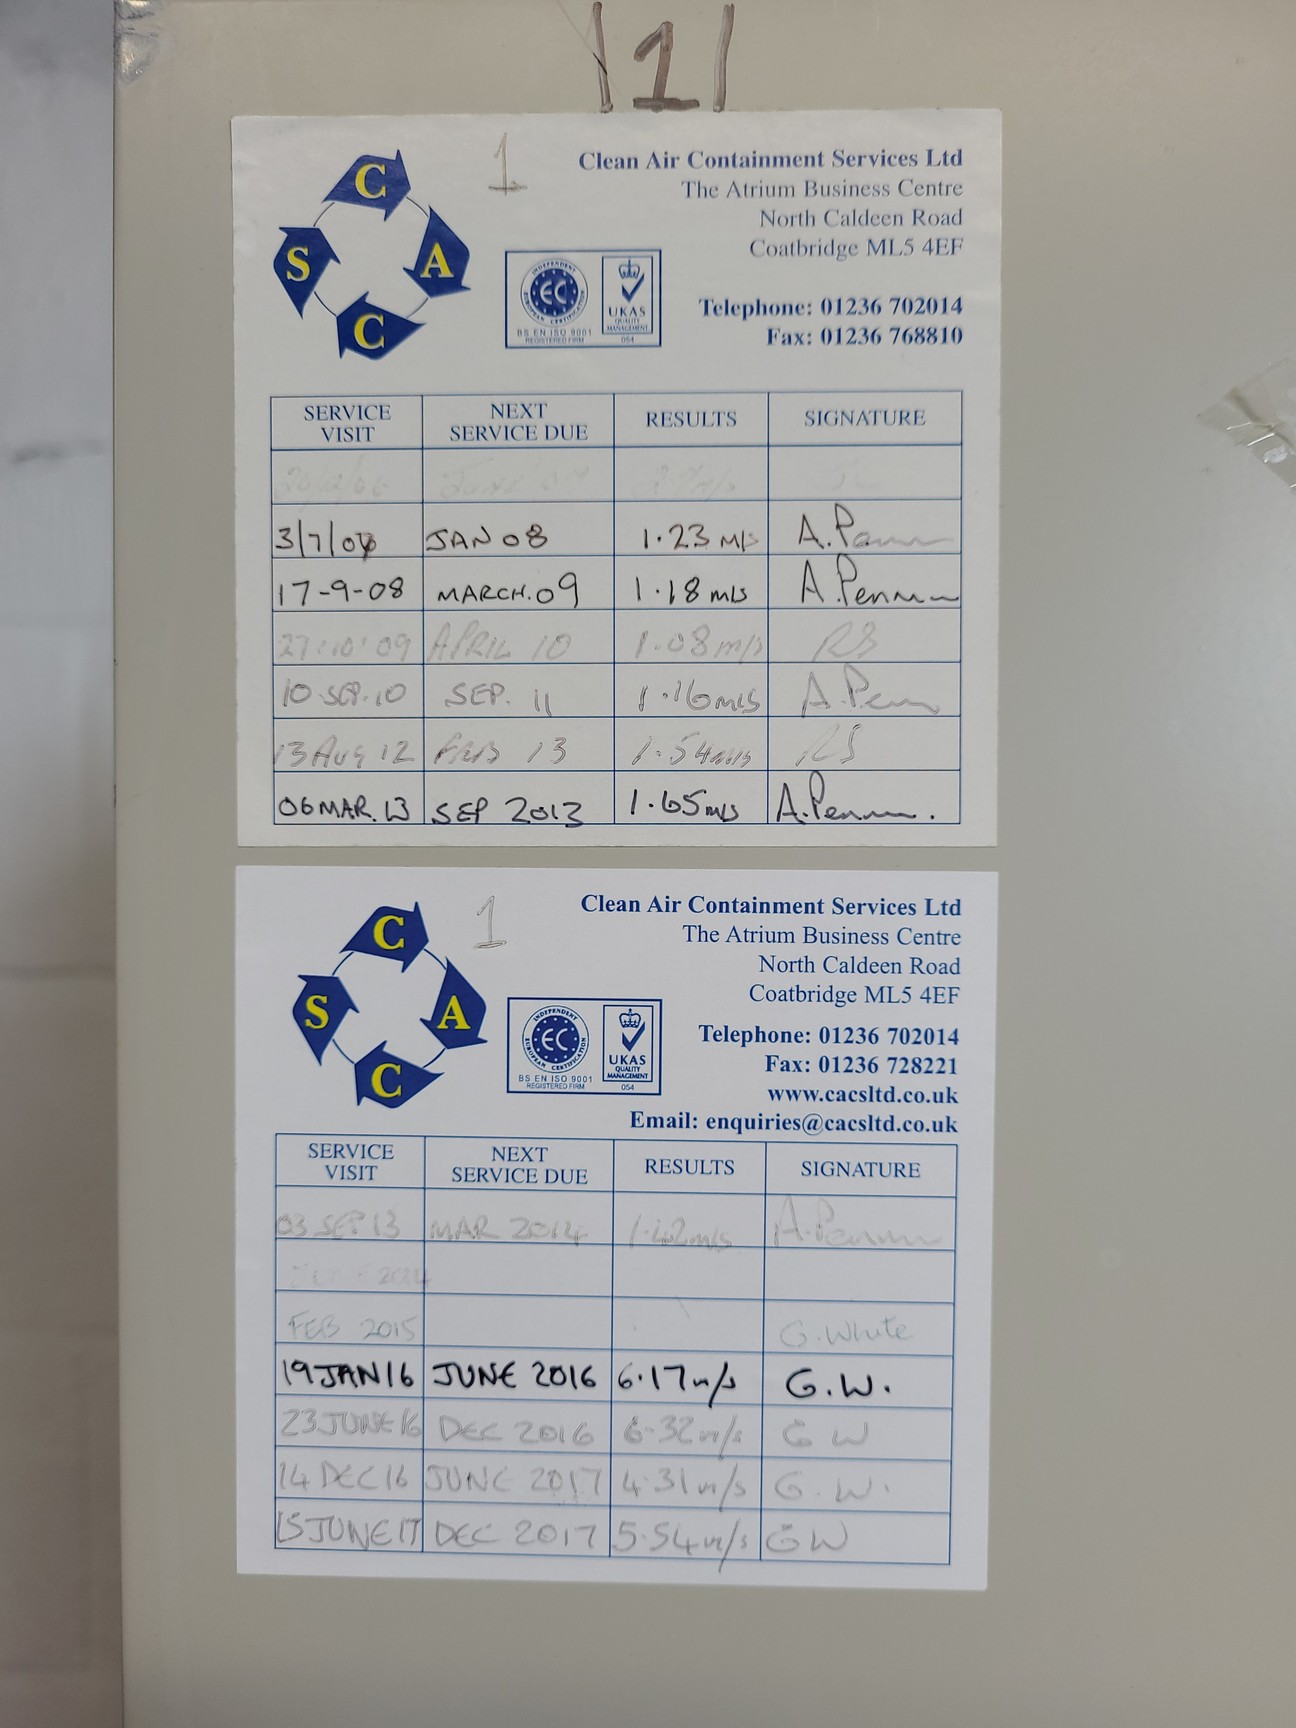 1
1
Clean Air Containment Services Ltd
The Atrium Business Centre
North Caldeen Road
Coatbridge ML5 4EF
C
A
C
S
INDEPENDENT
EC
EUROPEAN CERTIFICATION
BS EN ISO 9001
REGISTERED FIRM
UKAS
QUALITY
MANAGEMENT
054
Telephone: 01236 702014
Fax: 01236 768810
SERVICE VISIT NEXT SERVICE DUE RESULTS SIGNATURE
3/7/07 JAN 08 1.23 m/s A.
17-9-08 MARCH.09 1.18 m/s A.
27.10.09 APRIL 10 1.08 m/s RS
10.SEP.10 SEP. 11 1.16 m/s A.
13 AUG 12 FEB 13 1.54 m/s RS
06 MAR.13 SEP 2013 1.65 m/s A.
1
Clean Air Containment Services Ltd
The Atrium Business Centre
North Caldeen Road
Coatbridge ML5 4EF
C
A
C
S
INDEPENDENT
EC
EUROPEAN CERTIFICATION
BS EN ISO 9001
REGISTERED FIRM
UKAS
QUALITY
MANAGEMENT
054
Telephone: 01236 702014
Fax: 01236 728221
www.cacsltd.co.uk
Email: enquiries@cacsltd.co.uk
SERVICE VISIT NEXT SERVICE DUE RESULTS SIGNATURE
03 SEP 13 MAR 2014 1.42 m/s A.
2014
FEB 2015 G. White
19 JAN 16 JUNE 2016 6.17 m/s G.W.
23 JUNE 16 DEC 2016 6.32 m/s G W
14 DEC 16 JUNE 2017 4.31 m/s G. W.
15 JUNE 17 DEC 2017 5.54 m/s G W